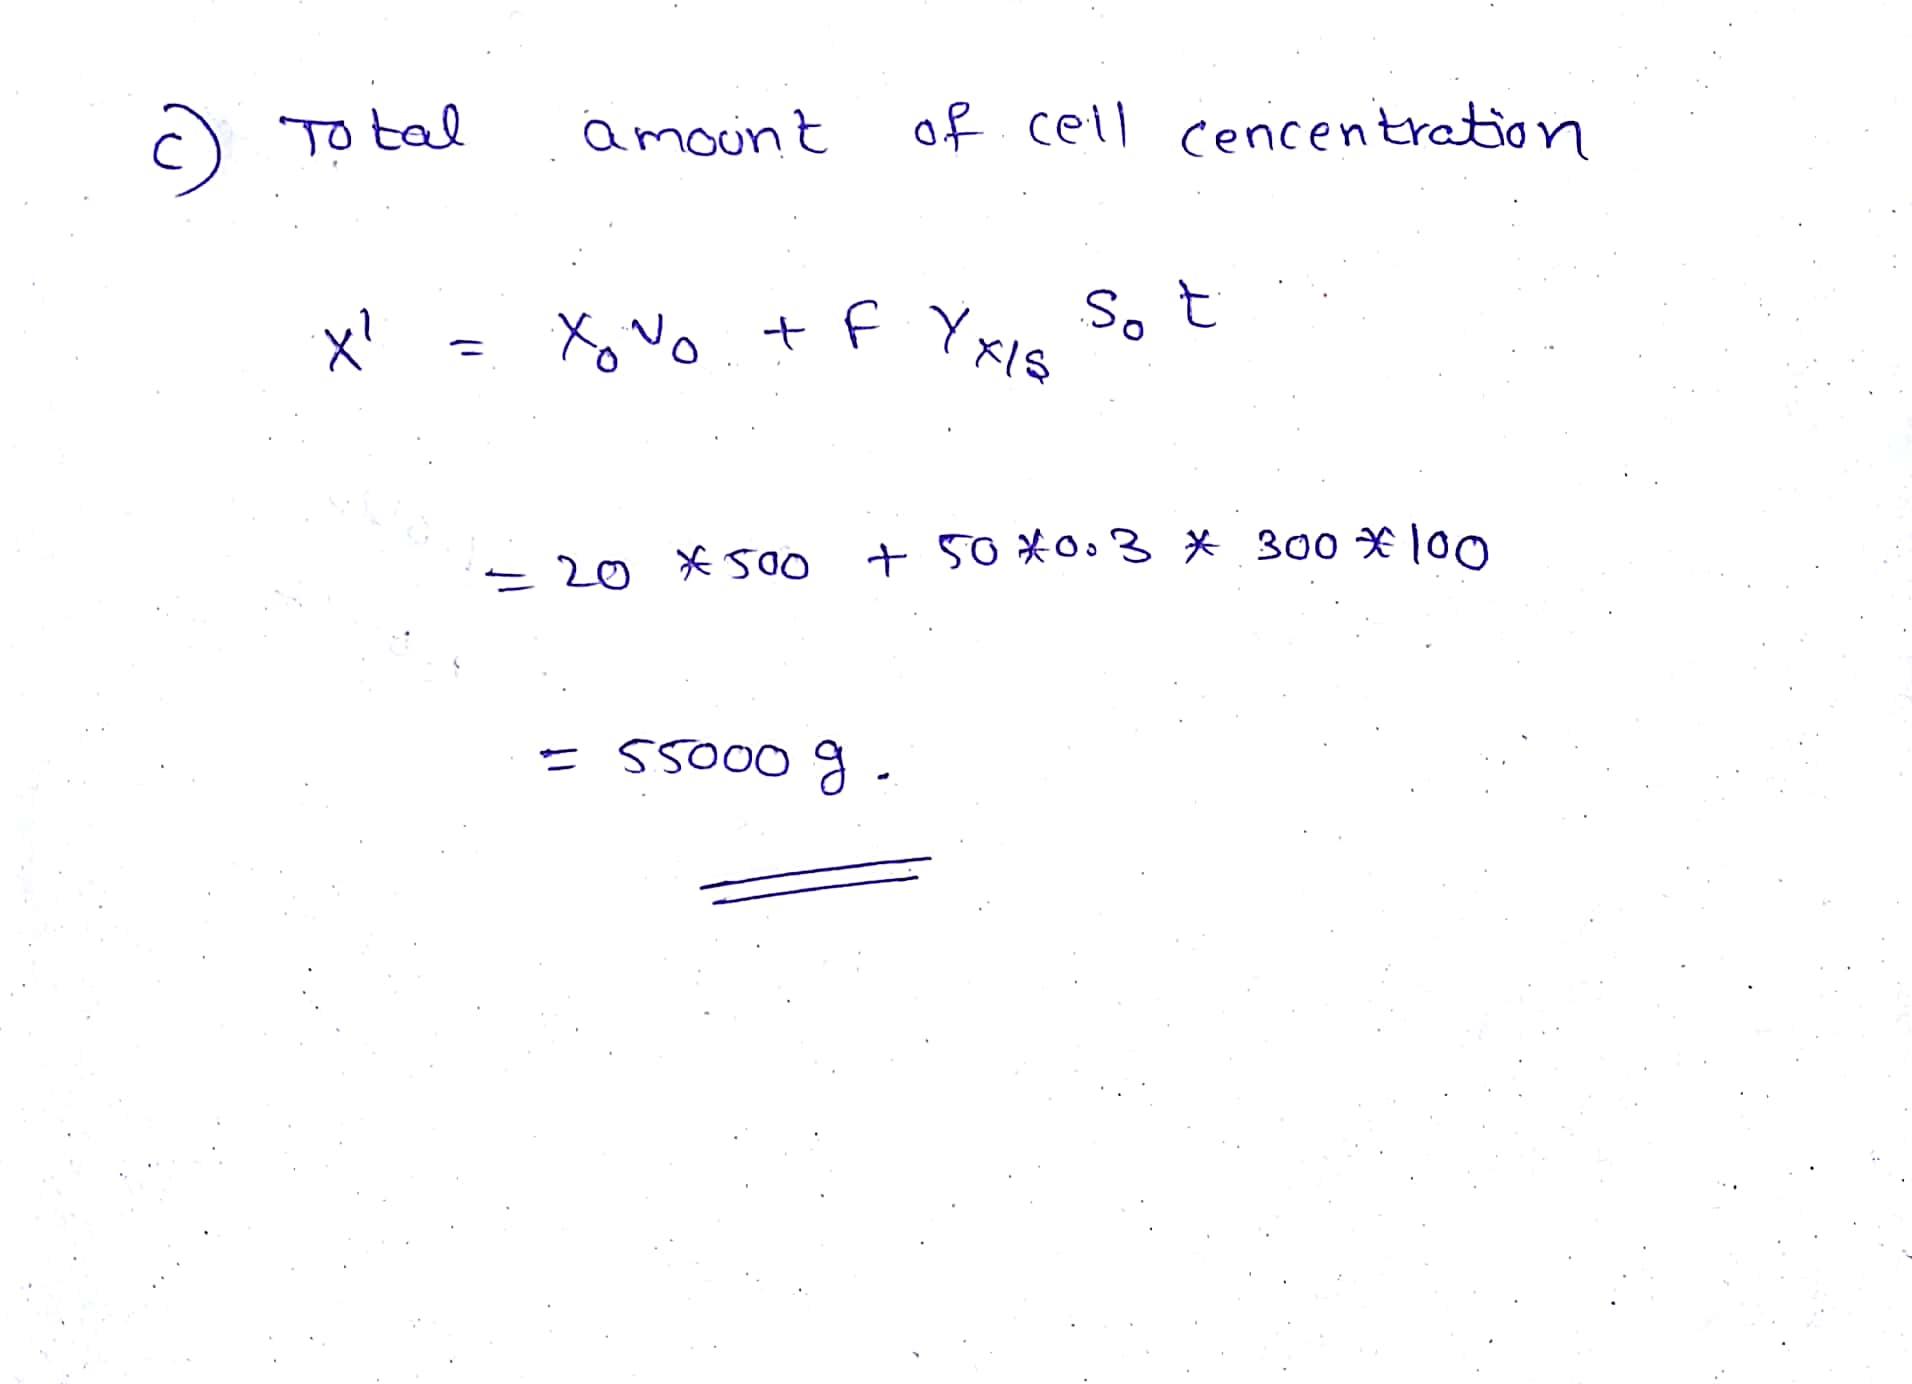 c) Total amount of cell cencentration
X' = X₀V₀ + F Y_X/S S₀ t
= 20 * 500 + 50 * 0.3 * 300 * 100
= 55000 g.